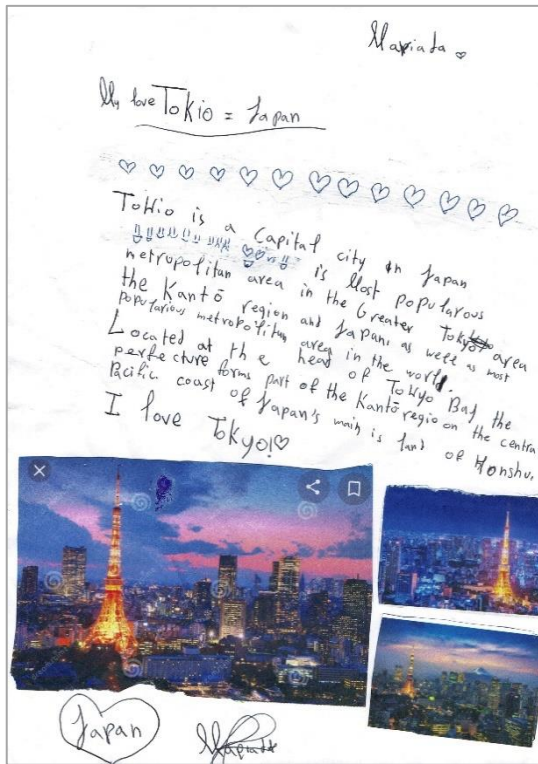 Mapiada
My love Tokio = Japan
Tokio is a capital city in Japan
is Most popularous
metropolitan area in the Greater Tokyo area
the Kantō region and Japan, as well as most
popularious metropolitan area in the world.
Located at the head of Tokyo Bay the
perfecture forms part of the Kantō region on the centra
Pacific coast of Japan's main is land of Honshu.
I love Tokyo!
Japan